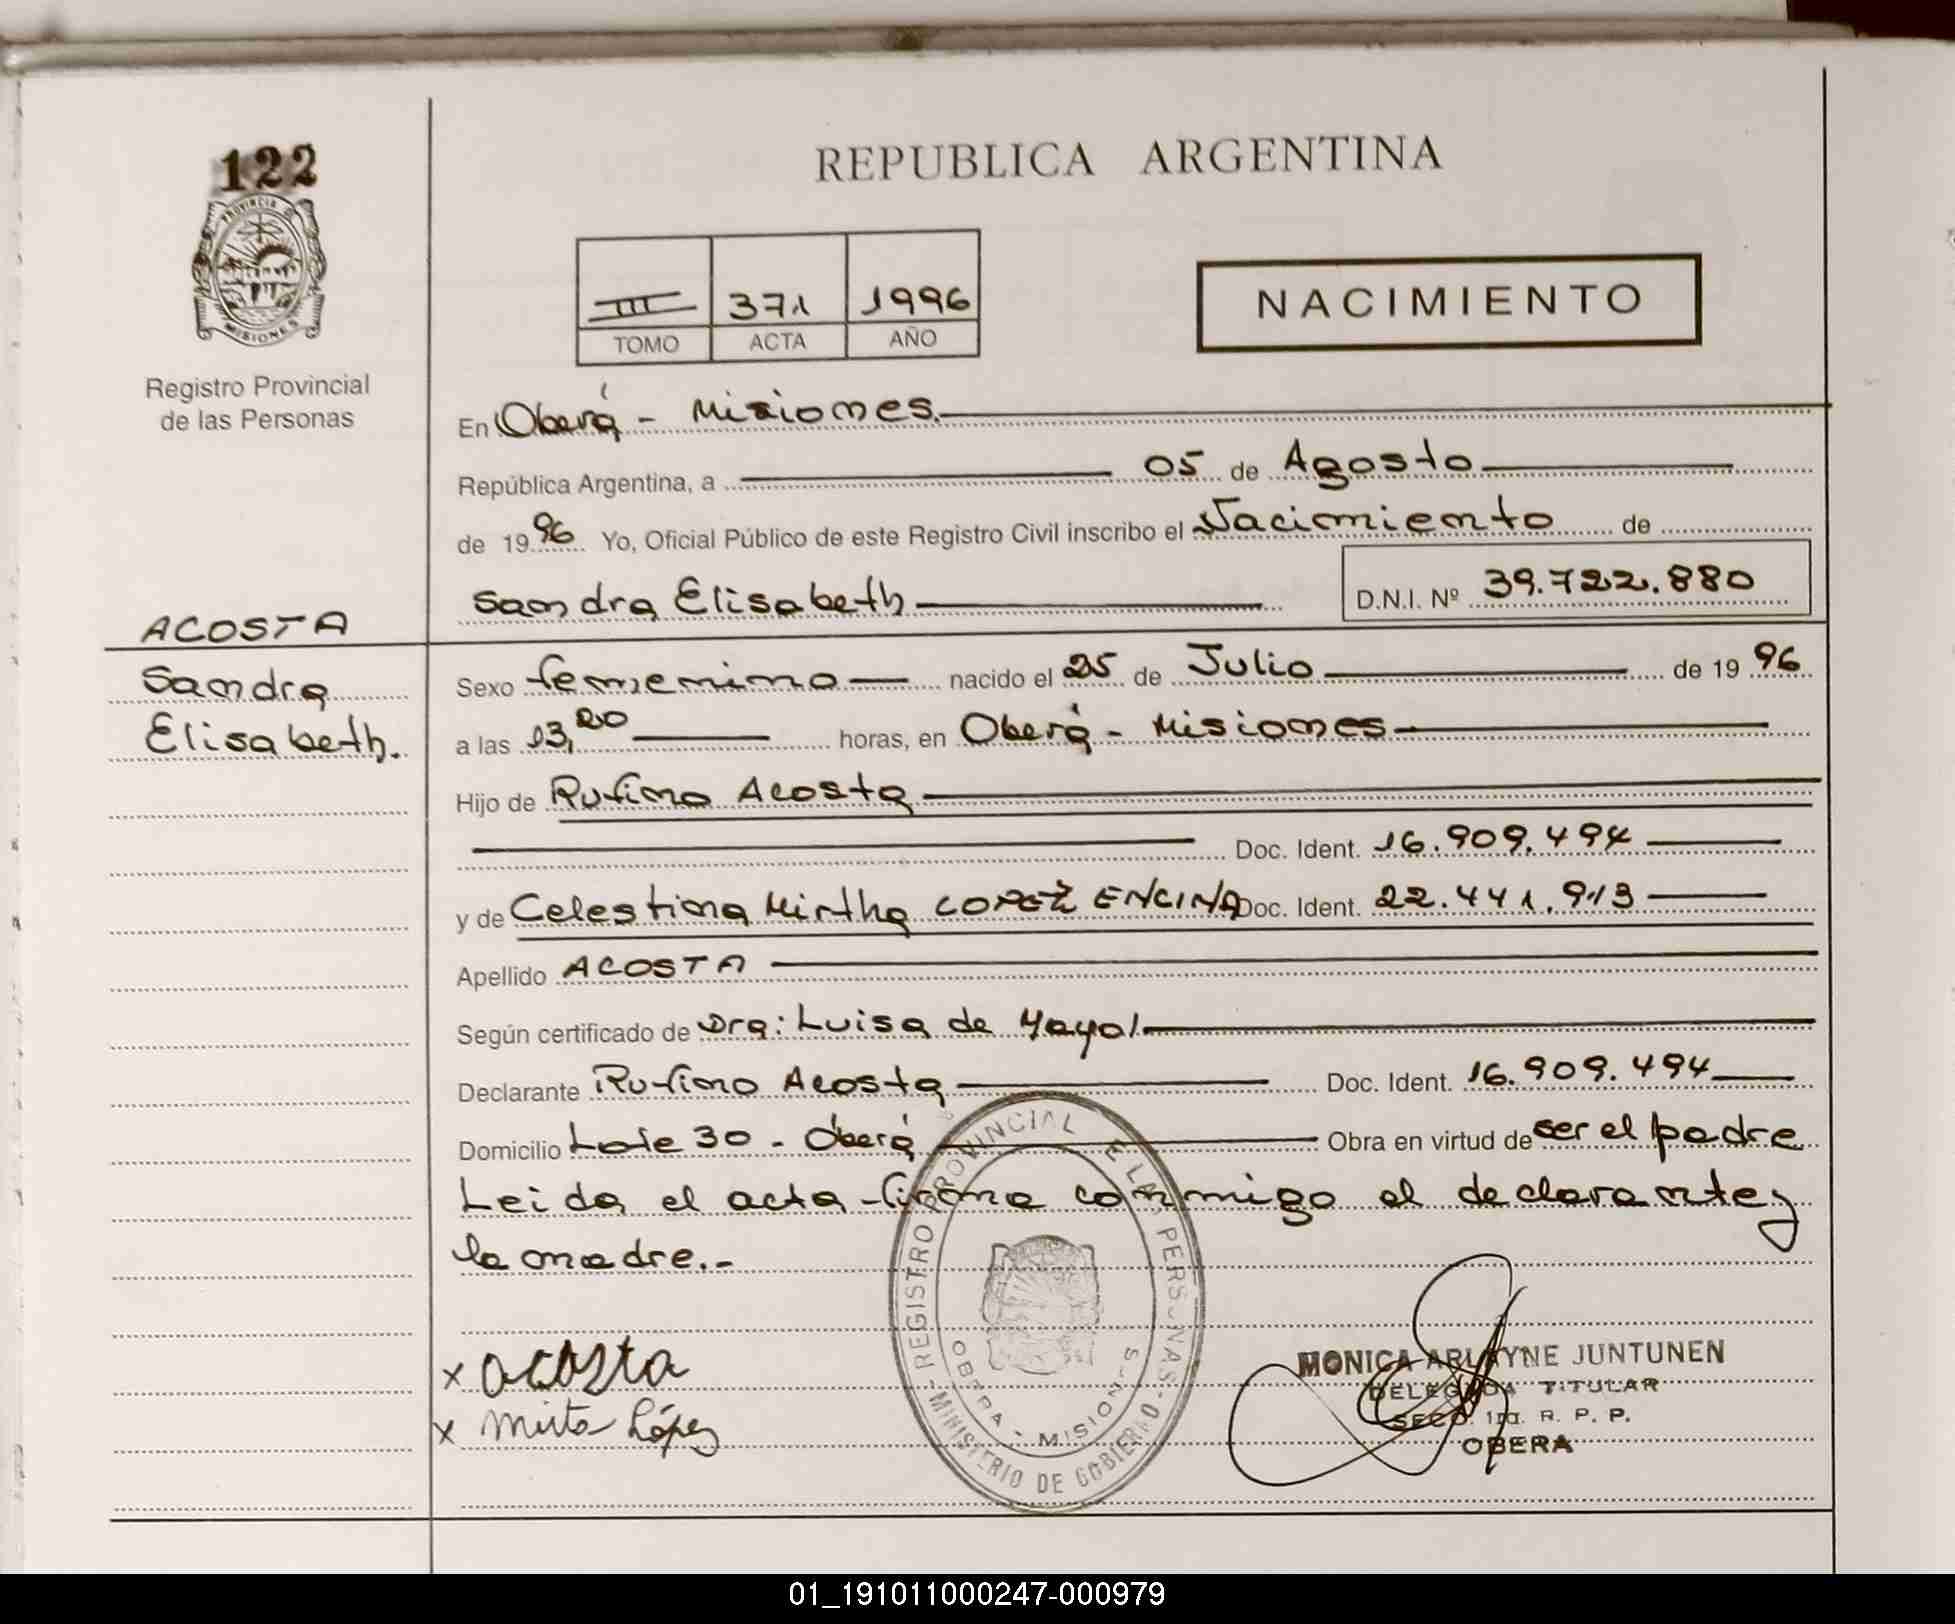 122
REPUBLICA ARGENTINA
PROVINCIA DE
MISIONES
Registro Provincial
de las Personas
III 371 1996
TOMO ACTA AÑO
NACIMIENTO
En Oberá - Misiones.
República Argentina, a 05 de Agosto
de 1996 Yo, Oficial Público de este Registro Civil inscribo el Nacimiento de
Sandra Elisabeth D.N.I. Nº 39.722.880
ACOSTA
Sandra
Elisabeth.
Sexo femenino nacido el 25 de Julio de 1996
a las 13,20 horas, en Oberá - Misiones
Hijo de Rufino Acosta
Doc. Ident. 16.909.494
y de Celestina Mirtha LOPEZ ENCINA Doc. Ident. 22.441.913
Apellido ACOSTA
Según certificado de Dra: Luisa de Mayol
Declarante Rufino Acosta Doc. Ident. 16.909.494
Domicilio Lote 30 - Oberá Obra en virtud de ser el padre
Leida el acta firma conmigo el declarante y
la madre.-
x acosta
x Mirta López
REGISTRO PROVINCIAL DE LAS PERSONAS - MINISTERIO DE GOBIERNO
OBERA - MISIONES
MONICA ARLAYNE JUNTUNEN
DELEGADA TITULAR
SECC. 1ra. R. P. P.
OBERA
01_191011000247-000979